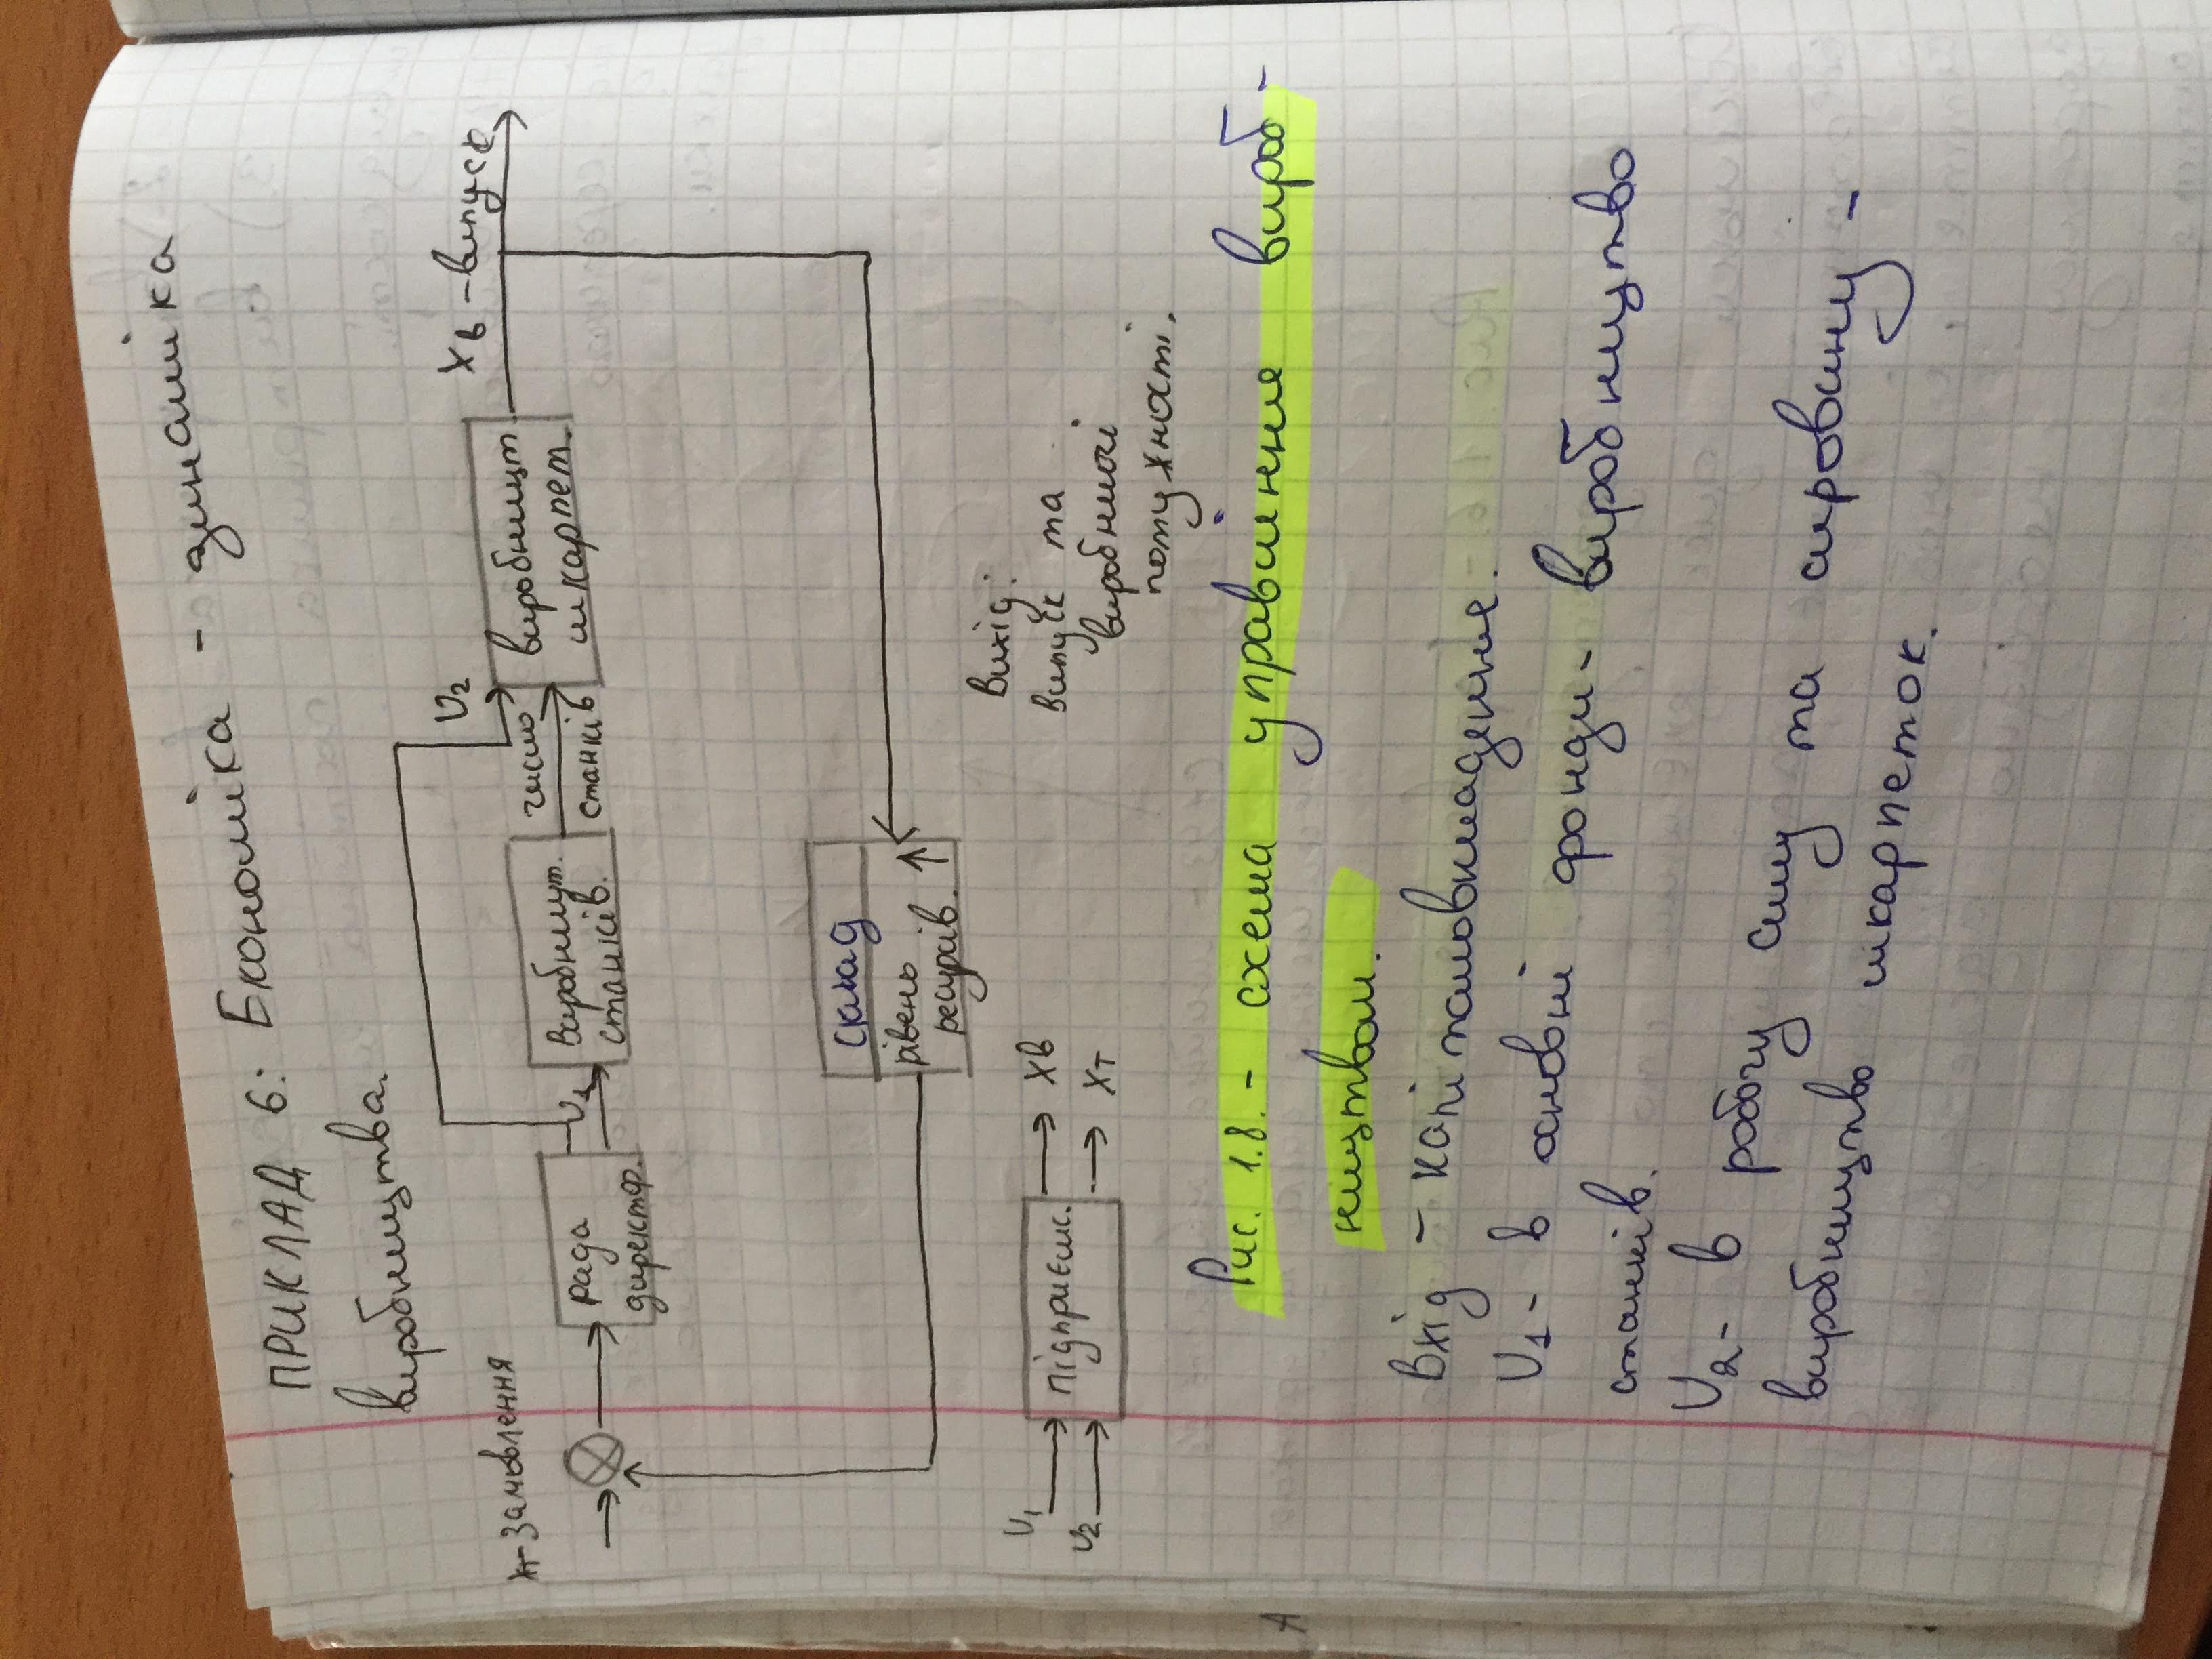 ПРИКЛАД 6: Економіка - динаміка
виробництва.
Хт-Замовлення
U2
Хв - випуск
рада
директор.
U1
Виробницт.
станків.
число
станків
виробницт.
шкарпет.
склад
рівень
ресурсів.
U1
U2
підприємс.
Хв
Хт
Вихід:
випуск та
виробничі
потужності.
Рис. 1.8. - схема управління вироб-
ництвом.
Вхід - капіталовкладення.
U1 - в основні фонди - виробництво
станків.
U2 - в робочу силу та сировину -
виробництво шкарпеток.